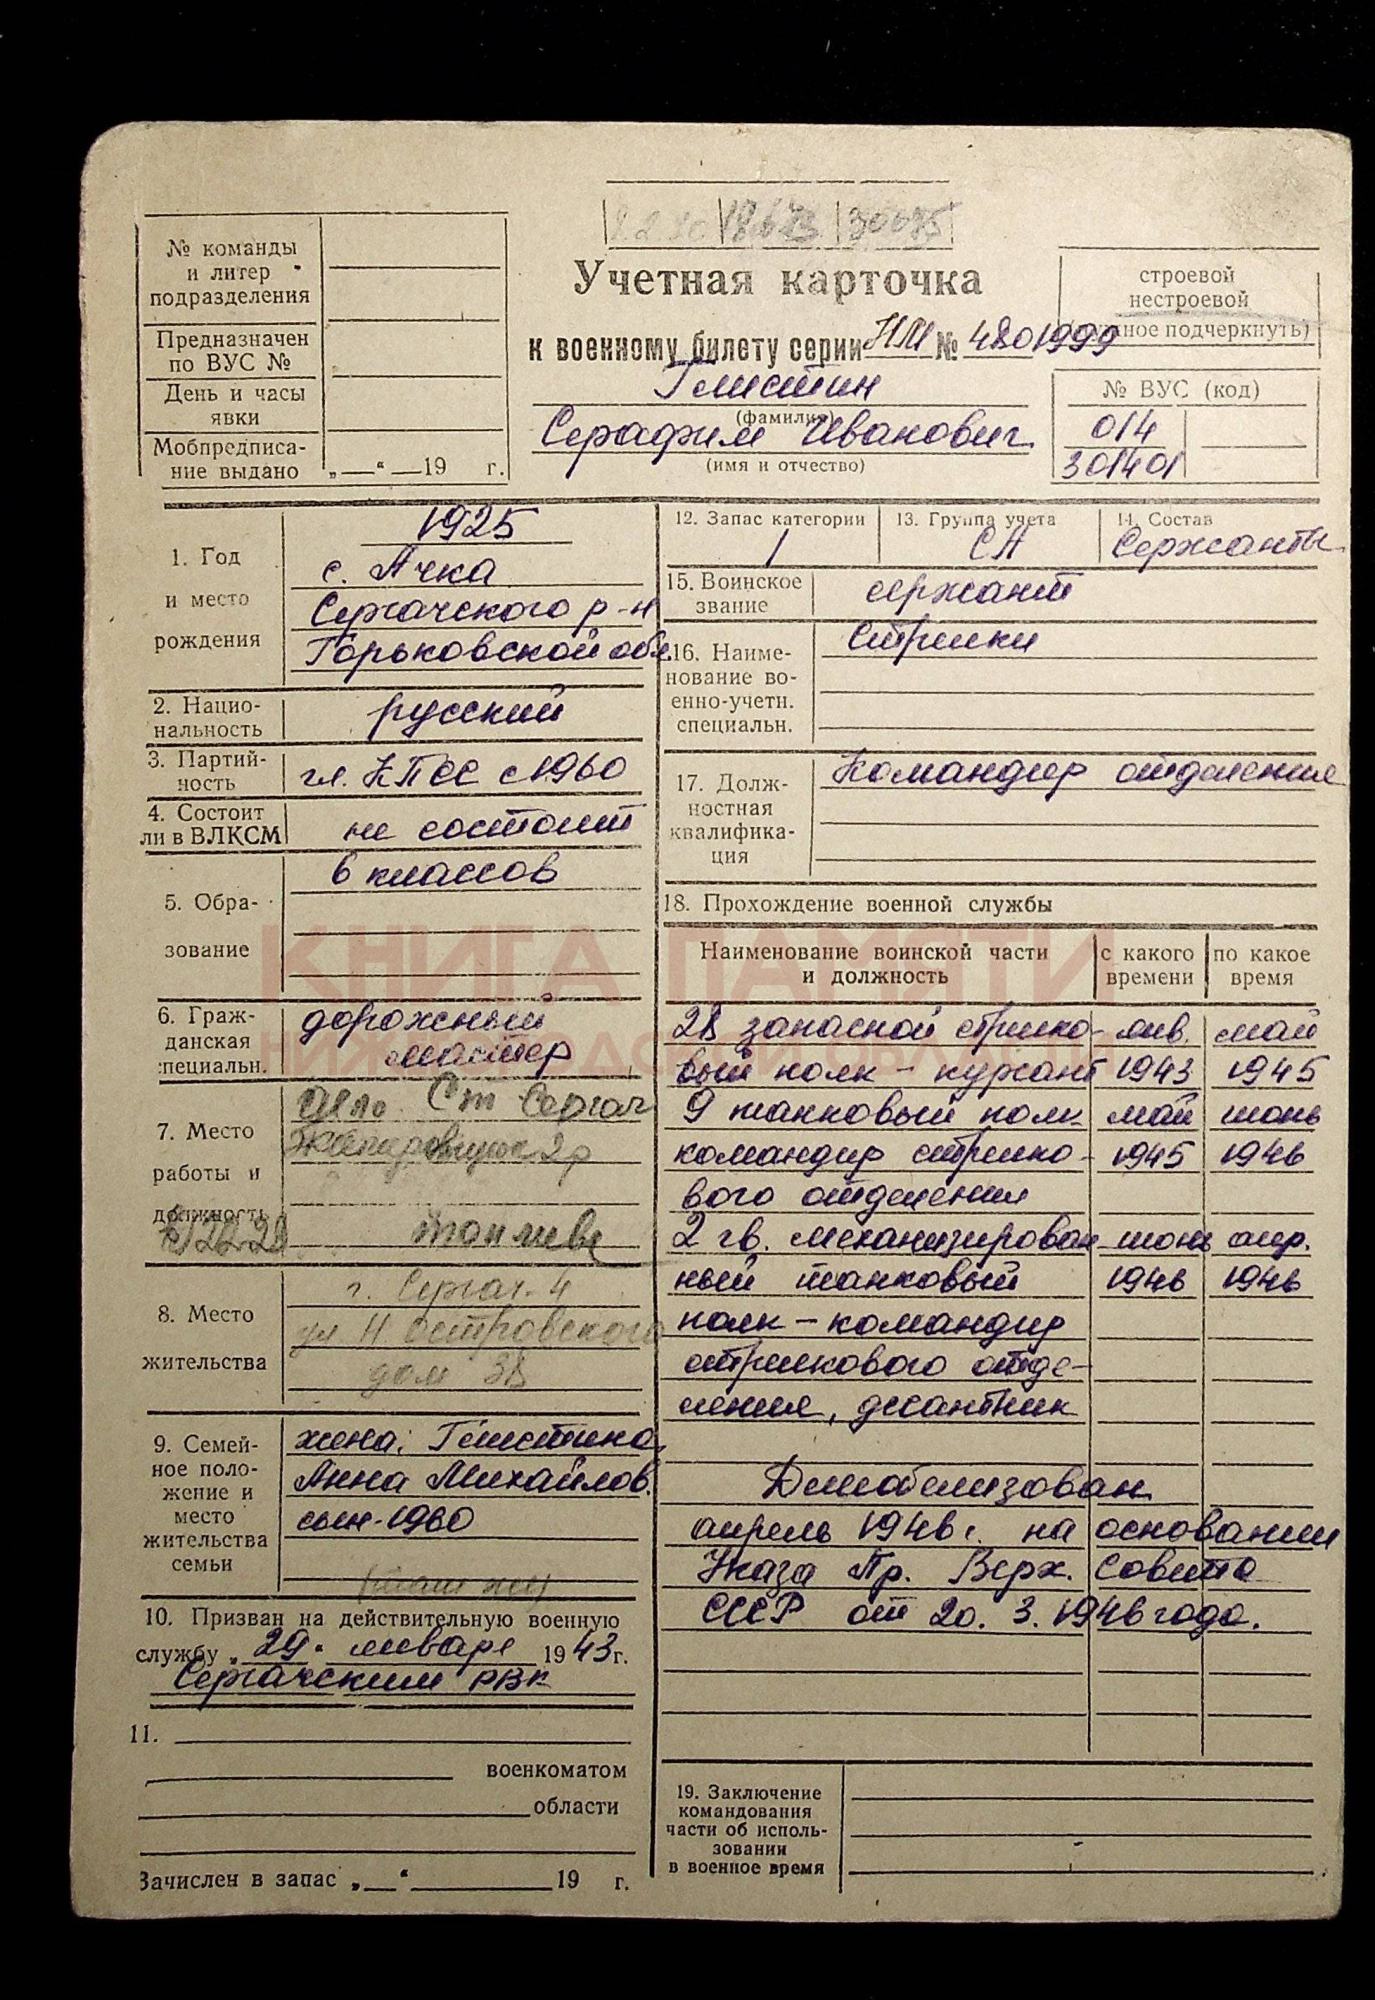 18673 30675
№ команды
и литер
подразделения
Предназначен
по ВУС №
День и часы
явки
Мобпредписа-
ние выдано „—“—19 г.
Учетная карточка
к военному билету серии НМ № 4801999
Глистин
(фамилия)
Серафим Иванович
(имя и отчество)
строевой
нестроевой
(нужное подчеркнуть)
№ ВУС (код)
014
301401
1. Год
и место
рождения
1925
с. Ачка
Сергачского р-н
Горьковской обл.
2. Нацио-
нальность
русский
3. Партий-
ность
чл. КПСС с 1960
4. Состоит
ли в ВЛКСМ
не состоит
5. Обра-
зование
6 классов
6. Граж-
данская
специальн.
дорожный
мастер
7. Место
работы и
должность
Ст Сергач
8. Место
жительства
г. Сергач-4
ул Н Островского
дом 38
9. Семей-
ное поло-
жение и
место
жительства
семьи
жена: Глистина
Анна Михайлов.
сын-1960
(там же)
10. Призван на действительную военную
службу „29“ января 1943 г.
Сергачским РВК
11.
военкоматом
области
Зачислен в запас „—“ 19 г.
12. Запас категории
1
13. Группа учета
СА
14. Состав
Сержанты
15. Воинское
звание
сержант
16. Наиме-
нование во-
енно-учетн.
специальн.
Стрелки
17. Долж-
ностная
квалифика-
ция
Командир отделения
18. Прохождение военной службы
Наименование воинской части
и должность
с какого
времени
по какое
время
28 запасной стрелко- янв. май
вый полк - курсант 1943 1945
9 танковый полк май июнь
командир стрелко- 1945 1946
вого отделения
2 гв. механизирован июнь апр.
ный танковый 1946 1946
полк - командир
стрелкового отде-
ления, десантник
Демобилизован
апрель 1946 г. на основании
Указа Пр. Верх. Совета
СССР от 20.3.1946 года.
19. Заключение
командования
части об исполь-
зовании
в военное время
КНИГА ПАМЯТИ
НИЖЕГОРОДСКОЙ ОБЛАСТИ